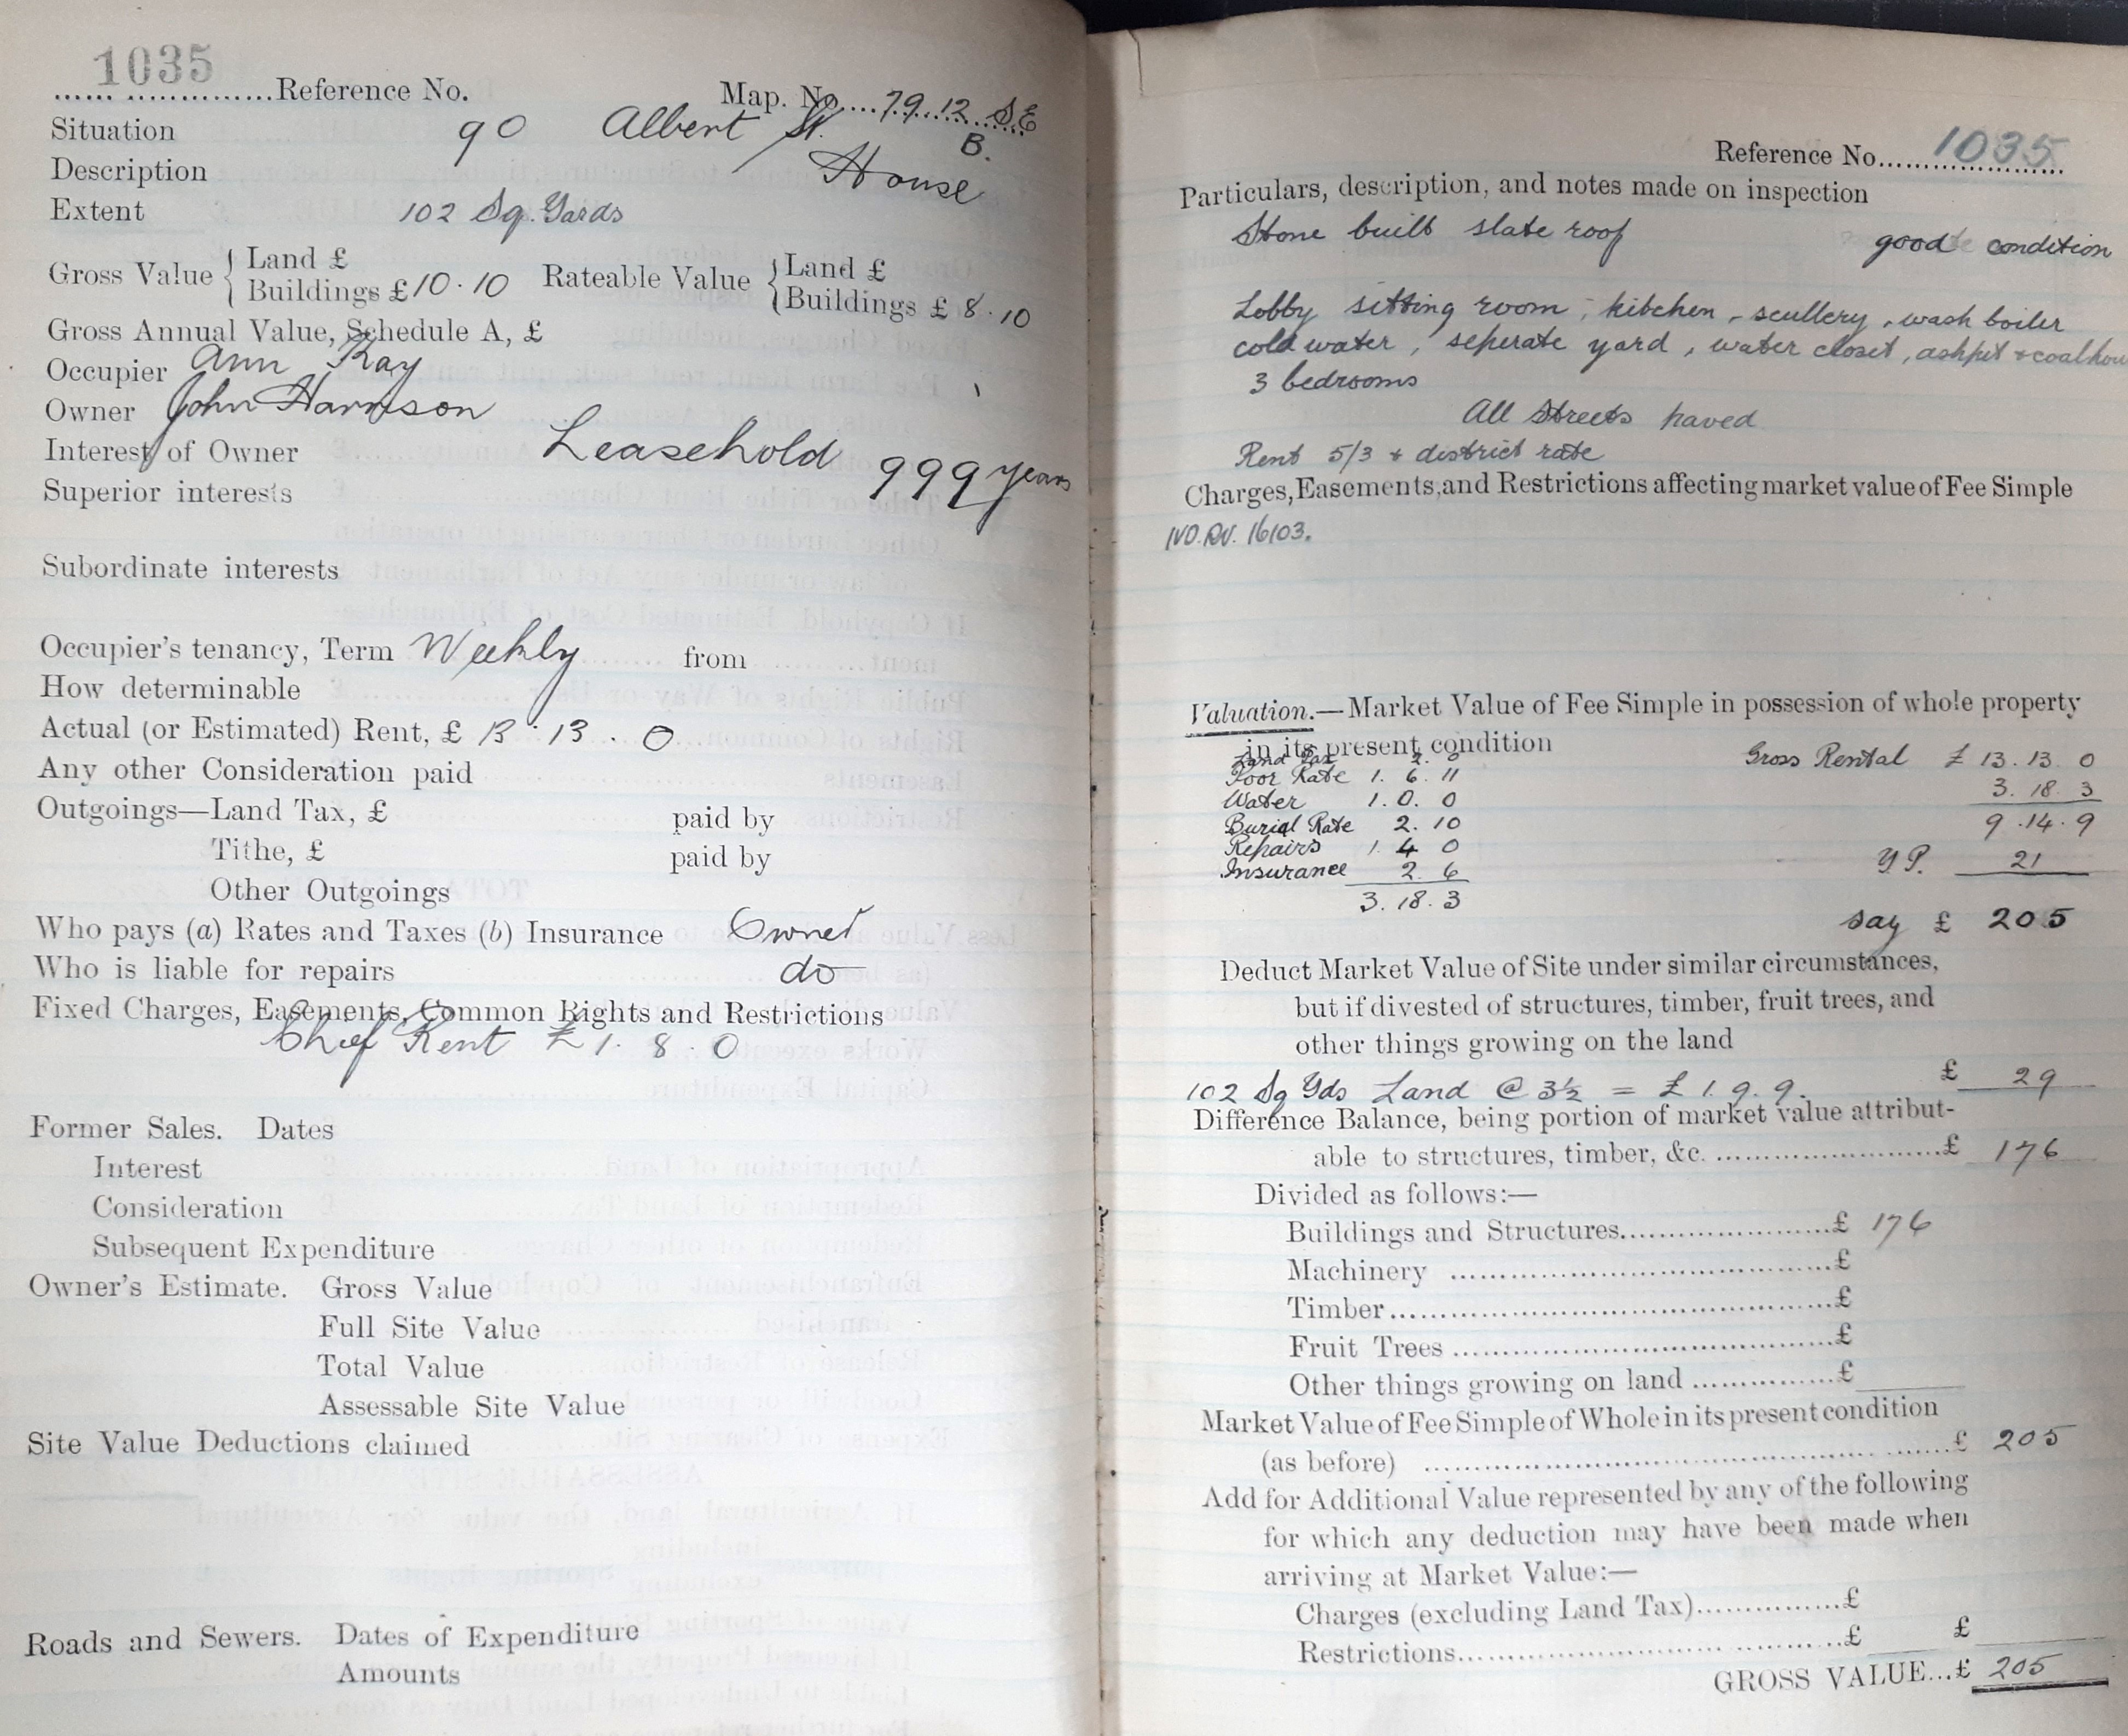 1035
...... ...............Reference No.
Map. No....79.12 S.E
Situation 90 Albert St. B.
Description House
Extent 102 Sq. Yards
Gross Value { Land £
Buildings £10.10
Rateable Value { Land £
Buildings £ 8.10
Gross Annual Value, Schedule A, £
Occupier Ann Kay
Owner John Harrison
Interest of Owner Leasehold 999 years
Superior interests
Subordinate interests
Occupier's tenancy, Term Weekly from
How determinable
Actual (or Estimated) Rent, £ 13.13.0
Any other Consideration paid
Outgoings—Land Tax, £ paid by
Tithe, £ paid by
Other Outgoings
Who pays (a) Rates and Taxes (b) Insurance Owner
Who is liable for repairs do
Fixed Charges, Easements, Common Rights and Restrictions
Chief Rent £1.8.0
Former Sales. Dates
Interest
Consideration
Subsequent Expenditure
Owner's Estimate. Gross Value
Full Site Value
Total Value
Assessable Site Value
Site Value Deductions claimed
Roads and Sewers. Dates of Expenditure
Amounts
Reference No. 1035
Particulars, description, and notes made on inspection
Stone built slate roof good condition
Lobby sitting room, kitchen, scullery, wash boiler
cold water, seperate yard, water closet, ashpit & coalhou
3 bedrooms
All Streets paved
Rent 5/3 & district rate
Charges, Easements, and Restrictions affecting market value of Fee Simple
IVD. RV. 16103.
Valuation.—Market Value of Fee Simple in possession of whole property
in its present condition
Land Tax 2. 0
Poor Rate 1. 6. 11
Water 1. 0. 0
Burial Rate 2. 10
Repairs 1. 4 0
Insurance 2. 6
3. 18. 3
Gross Rental £ 13. 13. 0
3. 18. 3
9. 14. 9
Y.P. 21
say £ 205
Deduct Market Value of Site under similar circumstances,
but if divested of structures, timber, fruit trees, and
other things growing on the land
102 Sq Yds Land @ 3½ = £1.9.9. £ 29
Difference Balance, being portion of market value attribut-
able to structures, timber, &c. ........................£ 176
Divided as follows:—
Buildings and Structures.....................£ 176
Machinery .......................................£
Timber.............................................£
Fruit Trees .......................................£
Other things growing on land ...............£
Market Value of Fee Simple of Whole in its present condition
(as before) .......................................£ 205
Add for Additional Value represented by any of the following
for which any deduction may have been made when
arriving at Market Value:—
Charges (excluding Land Tax)...............£
Restrictions.......................................£ £
GROSS VALUE...£ 205